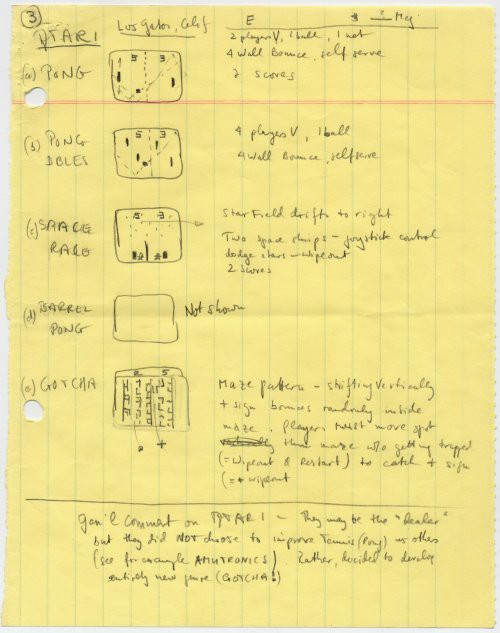 ③
ATARI Los Gatos, Calif E
(a) PONG
5 3
2 players V, 1 ball, 1 net
4 Wall Bounce, self serve
2 scores
(b) PONG
DBLES
5 3
4 players V, 1 ball
4 Wall Bounce, self serve
(c) SPACE
RACE
5 3
Star Field drifts to right
Two space ships - joystick control
dodge stars - wipeout
2 scores
(d) BARREL
PONG
Not shown
(e) GOTCHA
2 5
Maze pattern - shifting Vertically
+ sign bounces randomly inside
maze. Players MUST move spot
thru maze w/o getting trapped
(= Wipeout & Restart) to catch + sign
(= + wipeout
Gen'l Comment on ATARI - They may be the "leader"
but they did NOT choose to improve Tennis (Pong) as others
(see for example AMUTRONICS). Rather, decided to develop
entirely new game (GOTCHA!)